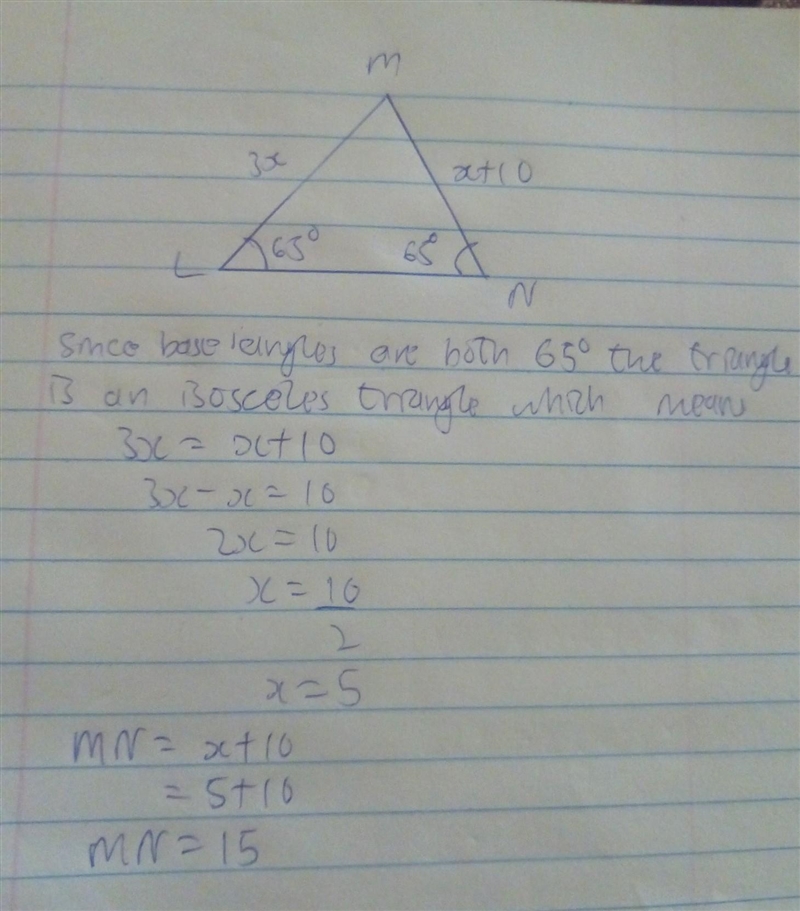 M
3x
x+10
L 65° 65°
N
Since base angles are both 65° the triangle
is an isosceles triangle which means
3x = x+10
3x - x = 10
2x = 10
x = 10
2
x = 5
MN = x+10
= 5+10
MN = 15